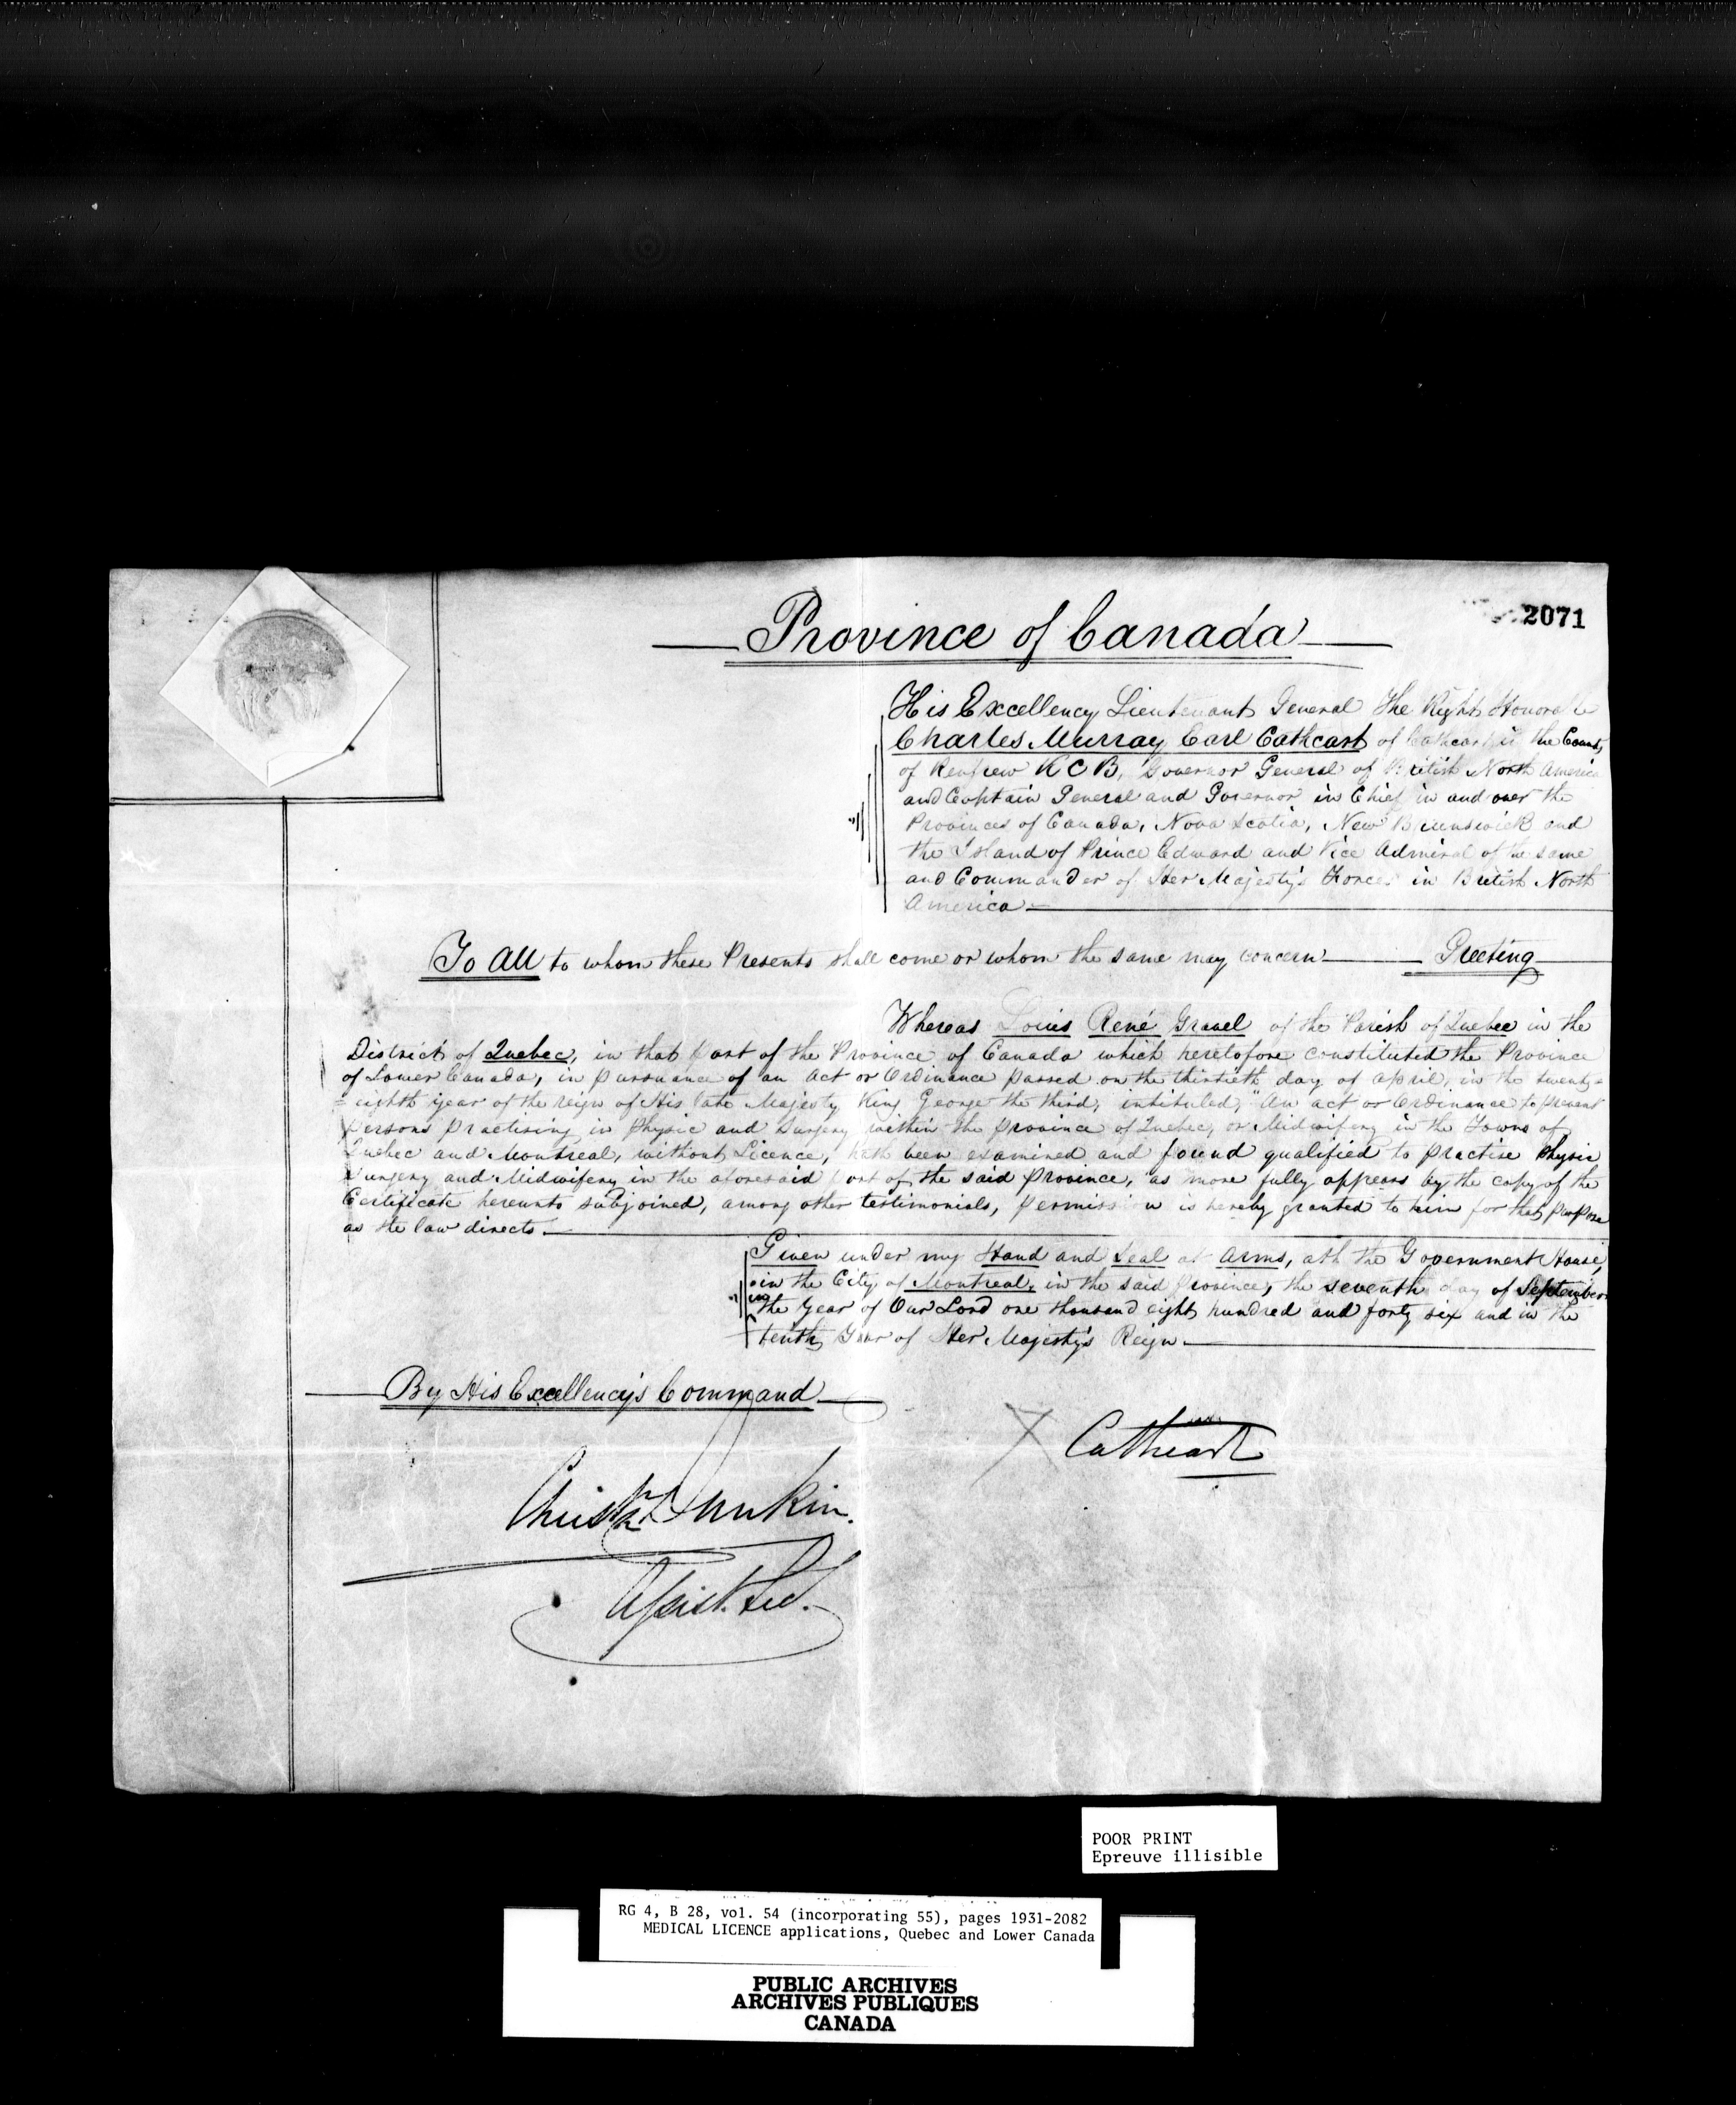 Province of Canada
2071
His Excellency Lieutenant General The Right Honorable
Charles Murray Earl Cathcart of Cathcart in the County
of Renfrew K C B, Governor General of British North America
and Captain General and Governor in Chief in and over the
Provinces of Canada, Nova Scotia, New Brunswick and
the Island of Prince Edward and Vice Admiral of the same
and Commander of Her Majesty's Forces in British North
America
To All to whom these Presents shall come or whom the same may concern Greeting
Whereas Louis René Gravel of the Parish of Quebec in the
District of Quebec, in that part of the Province of Canada which heretofore constituted the Province
of Lower Canada, in pursuance of an Act or Ordinance passed on the thirtieth day of April, in the twenty=
=eighth year of the reign of His late Majesty King George the third, intituled, "An act or Ordinance to prevent
persons practising in Physic and Surgery within the province of Quebec, or Midwifery in the Towns of
Quebec and Montreal, without Licence, hath been examined and found qualified to practise Physic
Surgery and Midwifery in the aforesaid part of the said Province, as more fully appears by the copy of the
Certificate hereunto subjoined, among other testimonials, permission is hereby granted to him for that purpose
as the law directs.
Given under my Hand and Seal at Arms, at the Government House,
in the City of Montreal, in the said Province, the seventh day of September
in the Year of Our Lord one thousand eight hundred and forty six and in the
tenth Year of Her Majesty's Reign
By His Excellency's Command
Cathcart
Christr. Dunkin.
Assist. Sec.
POOR PRINT
Epreuve illisible
RG 4, B 28, vol. 54 (incorporating 55), pages 1931-2082
MEDICAL LICENCE applications, Quebec and Lower Canada
PUBLIC ARCHIVES
ARCHIVES PUBLIQUES
CANADA